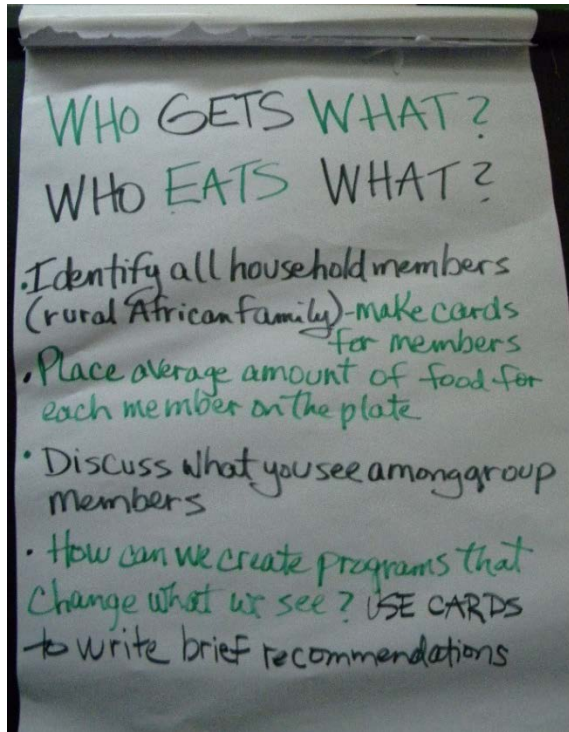 WHO GETS WHAT?
WHO EATS WHAT?
• Identify all household members
(rural African family) - make cards
for members
• Place average amount of food for
each member on the plate
• Discuss what you see among group
members
• How can we create programs that
change what we see? USE CARDS
to write brief recommendations